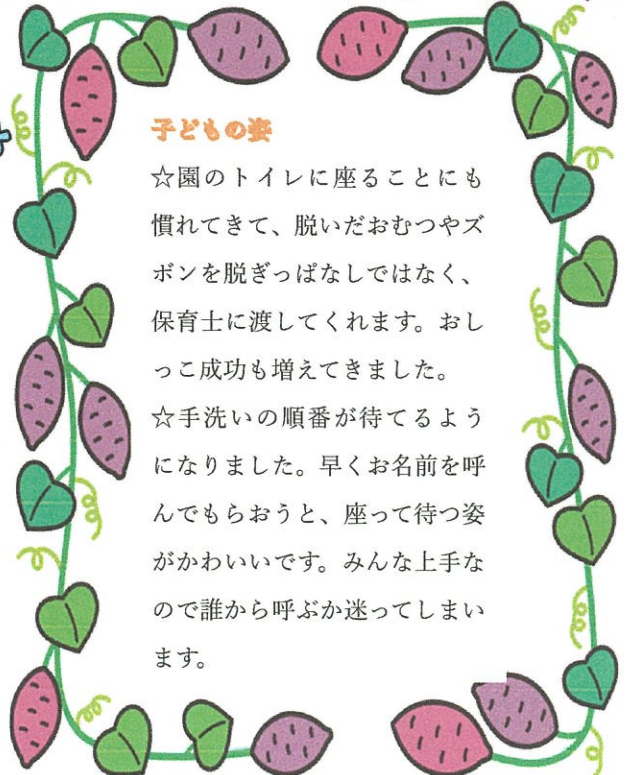 子どもの姿
☆園のトイレに座ることにも
慣れてきて、脱いだおむつやズ
ボンを脱ぎっぱなしではなく、
保育士に渡してくれます。おし
っこ成功も増えてきました。
☆手洗いの順番が待てるよう
になりました。早くお名前を呼
んでもらおうと、座って待つ姿
がかわいいです。みんな上手な
ので誰から呼ぶか迷ってしまい
ます。